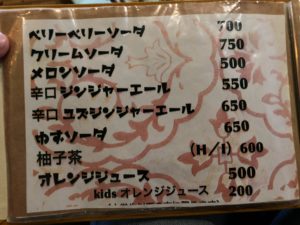 ベリーベリーソーダ 700
クリームソーダ 750
メロンソーダ 500
辛口 ジンジャーエール 550
辛口 ユズジンジャーエール 650
ゆずソーダ 650
柚子茶 (H/I) 600
オレンジジュース 500
kids オレンジジュース 200